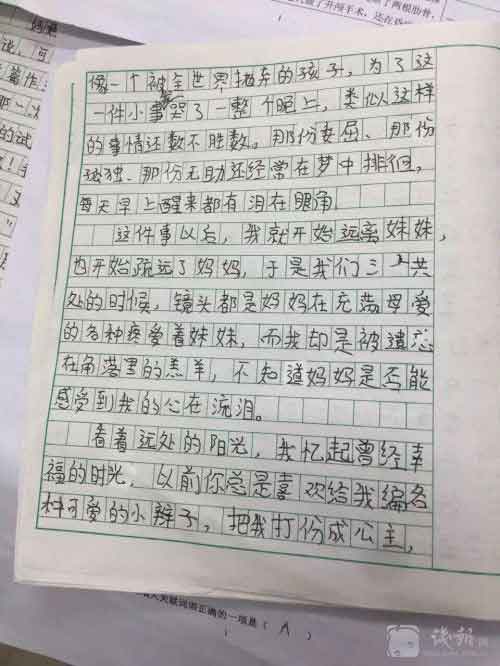 了两根肋骨,
像一个被全世界抛弃的孩子,为了这
一件小事哭了一整个晚上,类似这样
的事情还数不胜数。那份委屈、那份
孤独、那份无助还经常在梦中徘徊,
每天早上醒来都有泪在眼角
这件事以后,我就开始远离妹妹,
也开始疏远了妈妈,于是我们三人共
处的时候,镜头都是妈妈在充满母爱
的各种疼爱着妹妹,而我却是被遗忘
在角落里的羔羊,不知道妈妈是否能
感受到我的心在流泪。
看着远处的阳光,我忆起曾经幸
福的时光,以前你总是喜欢给我编各
种可爱的小辫子,把我打份成公主,
关联词语正确的一项是( A )